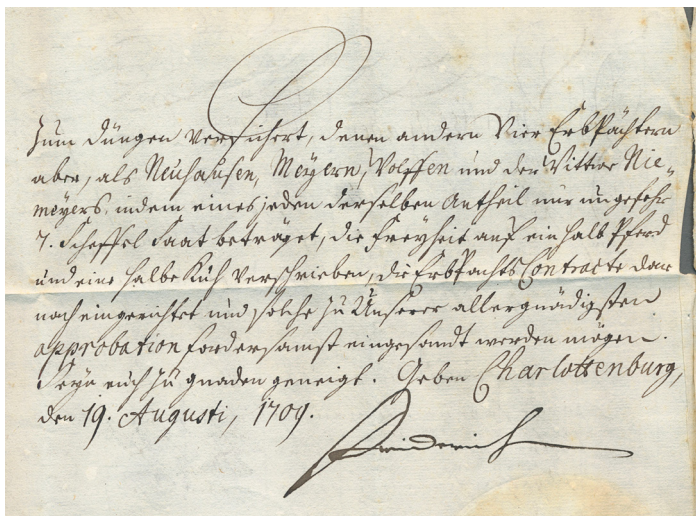 zum düngen versichert, denen andern Vier ErbPächtern
aber, als Neuhausen, Meyern, Wolffen und der Wittwe Nie=
meyers, indem eines jeden derselben Antheil nur ungefehr
7. Scheffel Saat beträget, die Freyheit auf ein halb Pferd
und eine halbe Kuh verschrieben, die ErbPachts Contracte dar
nach eingerichtet und solche zu Unserer allergnädigsten
approbation fordersamst eingesandt werden mögen.
Seyn euch zu gnaden geneigt. Geben Charlottenburg,
den 19. Augusti, 1709.
Friderich